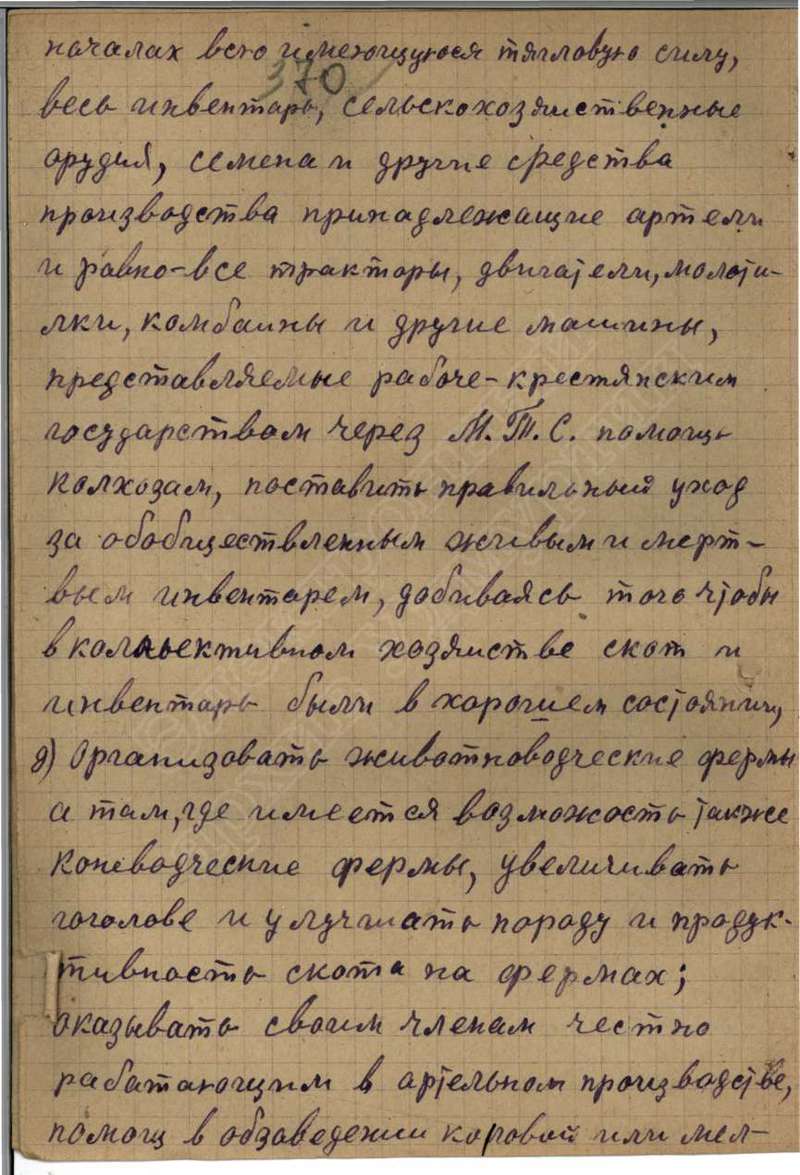 началах всю имеющуюся тягловую силу,
370
весь инвентарь, сельскохозяиственные
орудия, семена и другие средства
производства принадлежащие артели
и равно-все тракторы, двигатели, молоти-
лки, комбаины и другие машины,
представляемые рабоче-крестянским
государством через М.Т.С. помощь
колхозам, поставить правильный уход
за обобществленным живым и мерт-
вым инвентарем, добиваясь того чтобы
в коллективном хозяистве скот и
инвентарь были в хорошем состоянии,
д) Организовать животноводческие фермы
а там, где имеется возможость также
коневодческие фермы, увеличивать
гоголове и улучшать породу и продук-
тивность скота на фермах;
оказывать своим членам честно
работающим в артельном производстве,
помощ в обзаведении коровой или мел-